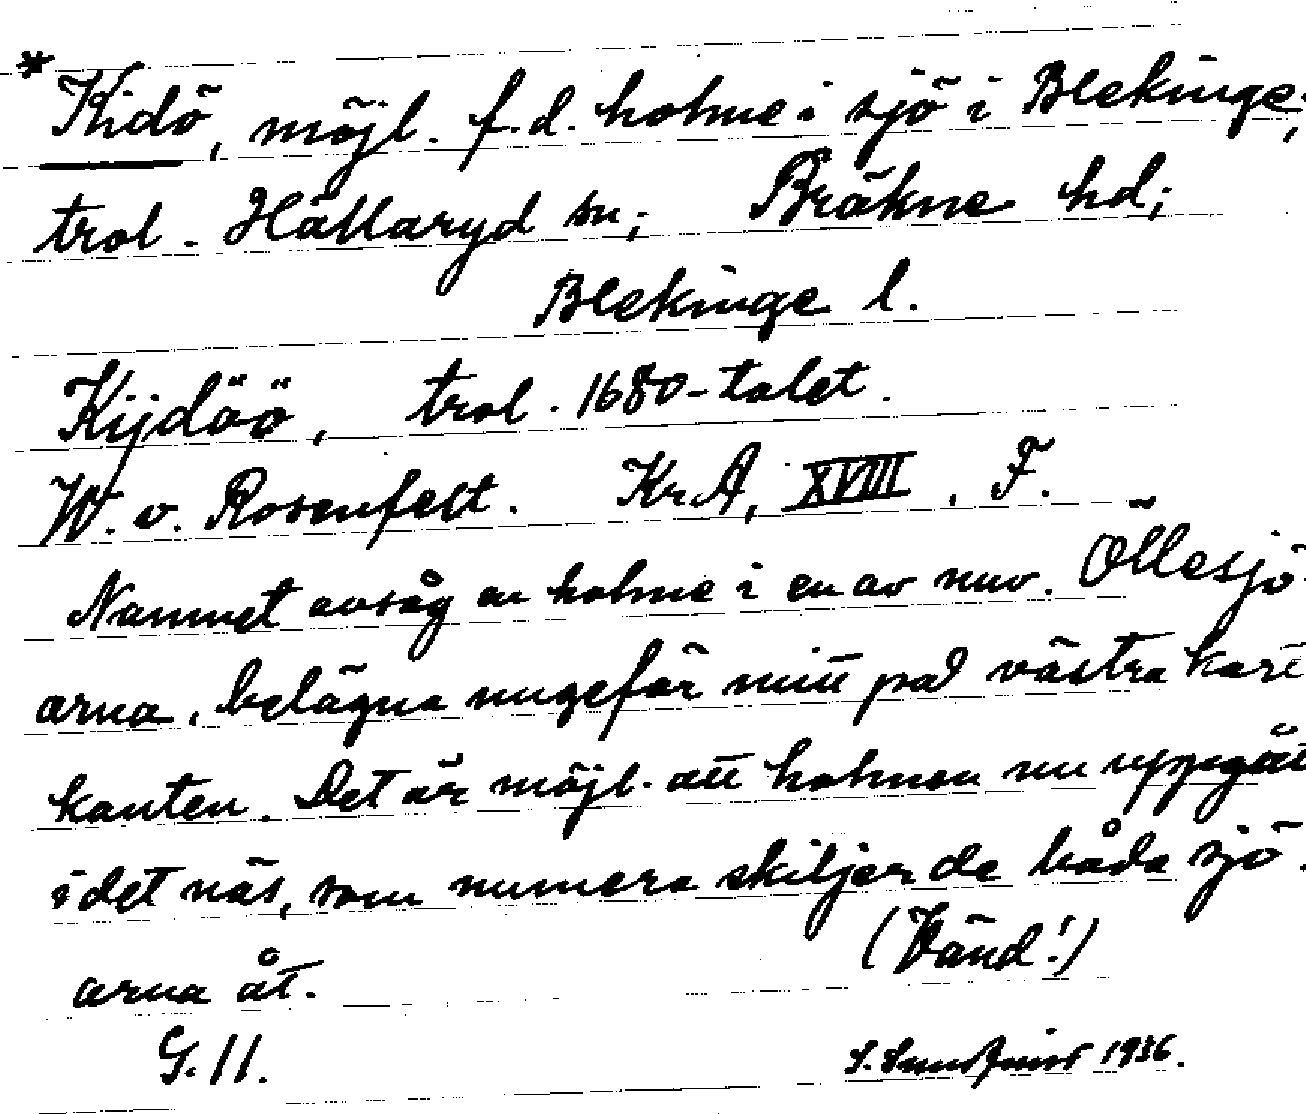 * Kidö, möjl. f.d. holme i sjö i Blekinge,
trol. Hällaryd sn; Bräkne hd;
Blekinge l.
Kijdöö, trol. 1680-talet.
W. v. Rosenfelt. KrA, XVIII, F.
Namnet avsåg en holme i en av nuv. Öllesjö-
arna, belägna ungefär mitt på västra kart-
kanten. Det är möjl. att holmen nu uppgått
i det näs, som numera skiljer de båda sjö-
arna åt. (Vänd!)
G. 11. S. 1936.